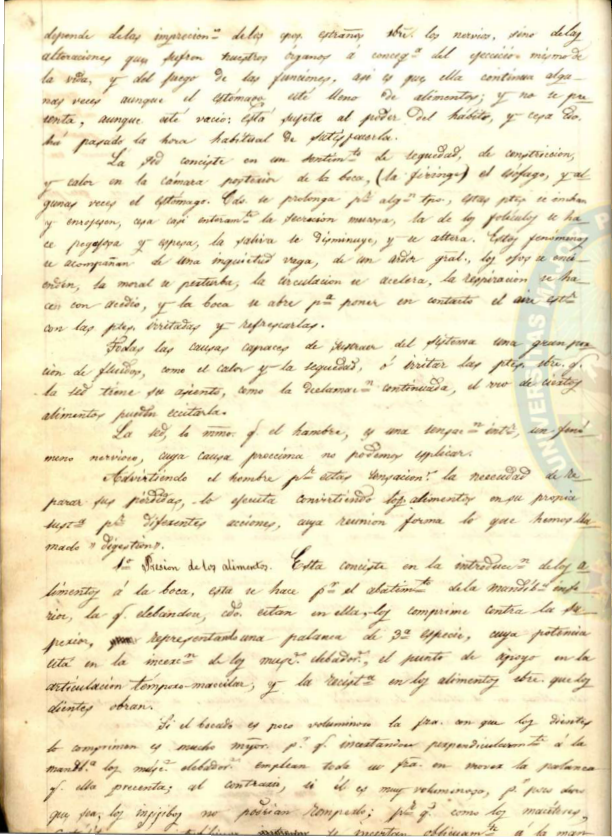 depende de las impresion.s de los qpos. estraños sbre. los nervios, sino de las
alteraciones que sufren nuestros órganos á conseq.a del ejercicio mismo de
la vida, y del juego de las funciones, asi es que ella continua algu-
nas veces aunque el estómago esté lleno de alimentos; y no se pre-
senta, aunque esté vacio: está sujeta al poder del habito, y cesa cdo.
há pasado la hora habitual de satisfacerla.
La Sed conciste en un sentim.to de sequedad, de constriccion,
y calor en la cámara posterior de la boca, (la faringe) el esófago, y al-
gunas veces el estómago. Cdo. se prolonga p.r alg.n tpo., estas ptes. se inchan
y enrogesen, cesa casi enteram.te la secresion mucosa, la de los foliculos se ha-
ce pegajosa y espesa, la saliva se disminuye, y se altera. Estos fenómenos
se acompañan de una inquietud vaga, de un ardor gral., los ojos se enci-
enden, la moral se perturba, la circulacion se acelera, la respiracion se ha-
cen con acedio, y la boca se abre p.a poner en contacto el aire est.r
con las ptes. irritadas y refrescarlas.
Todas las causas capaces de sustraer del sistema una gran por-
cion de fluidos, como el calor y la sequedad, ó irritar las ptes. sbre. q.
la sed tiene su asiento, como la declamac.n continuada, el uso de ciertos
alimentos pueden ecsitarla.
La sed, lo mmo. q. el hambre, es una sensac.n int.a, un fenó-
meno nervioso, cuya causa proccima no podemos esplicar.
Advirtiendo el hombre p.r estas sensacion.s la necesidad de re-
parar sus pérdidas, lo ejecuta convirtiendo los alimentos en su propia
sust.a p.r diferentes acciones, cuya reunion forma lo que hemos lla-
mado "digestion".
1.a Presion de los alimentos. Esta conciste en la introducc.n de los a-
limentos á la boca, esta se hace p.r el abatim.to de la mandib.a infe-
rior, la q. elebandose, cdo. estan en ella, los comprime contra la su-
perior, representando una palanca de 3.a especie, cuya potencia
está en la incerc.n de los musc.s elebador.s, el punto de apoyo en la
articulacion témporo-maccilar, y la resist.a en los alimentos sbre. que los
dientes obran.
Si el bocado es poco voluminoso la fza. con que los dientes
lo comprimen es mucho mayor. p.r q. incertandose perpendicularm.te á la
mandib.a los músc.s elebador.s emplean toda su fza. en mover la palanca
q. ella precenta; al contrario, si él es muy voluminoso, p.r poco duro
que sea, los incijibos no podrian romperlo; p.r q. como los maséteros,